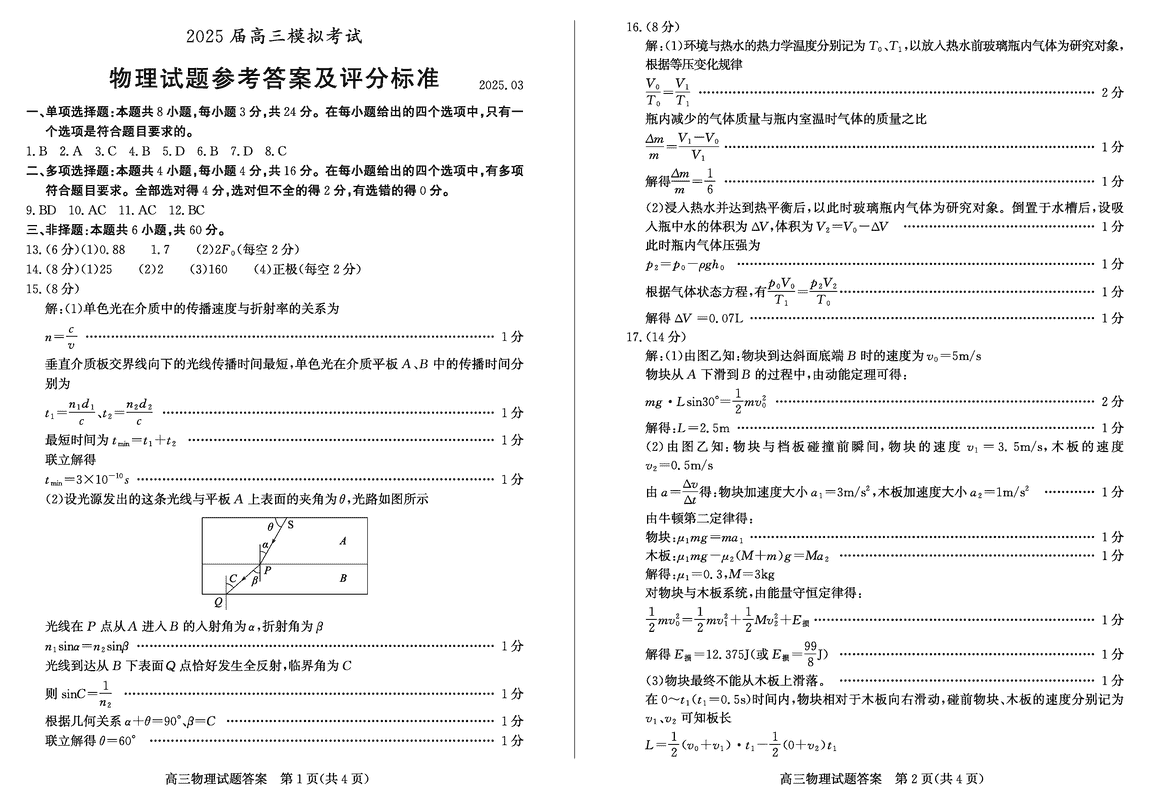 2025 届高三模拟考试
物理试题参考答案及评分标准 2025.03
一、单项选择题:本题共 8 小题,每小题 3 分,共 24 分。在每小题给出的四个选项中,只有一
个选项是符合题目要求的。
1.B 2.A 3.C 4.B 5.D 6.B 7.D 8.C
二、多项选择题:本题共 4 小题,每小题 4 分,共 16 分。在每小题给出的四个选项中,有多项
符合题目要求。全部选对得 4 分,选对但不全的得 2 分,有选错的得 0 分。
9.BD 10.AC 11.AC 12.BC
三、非择题:本题共 6 小题,共 60 分。
13.(6 分)(1)0.88 1.7 (2)2F₀(每空 2 分)
14.(8 分)(1)25 (2)2 (3)160 (4)正极(每空 2 分)
15.(8 分)
解:(1)单色光在介质中的传播速度与折射率的关系为
n=c/v ………… 1 分
垂直介质板交界线向下的光线传播时间最短,单色光在介质平板 A、B 中的传播时间分
别为
t₁=n₁d₁/c、t₂=n₂d₂/c ………… 1 分
最短时间为 tmin=t₁+t₂ ………… 1 分
联立解得
tmin=3×10⁻¹⁰s ………… 1 分
(2)设光源发出的这条光线与平板 A 上表面的夹角为 θ,光路如图所示
θ S
α A
P
C β B
Q
光线在 P 点从 A 进入 B 的入射角为 α,折射角为 β
n₁sinα=n₂sinβ ………… 1 分
光线到达从 B 下表面 Q 点恰好发生全反射,临界角为 C
则 sinC=1/n₂ ………… 1 分
根据几何关系 α+θ=90°、β=C ………… 1 分
联立解得 θ=60° ………… 1 分
高三物理试题答案 第 1 页(共 4 页)
16.(8 分)
解:(1)环境与热水的热力学温度分别记为 T₀、T₁,以放入热水前玻璃瓶内气体为研究对象,
根据等压变化规律
V₀/T₀=V₁/T₁ ………… 2 分
瓶内减少的气体质量与瓶内室温时气体的质量之比
Δm/m=(V₁−V₀)/V₁ ………… 1 分
解得Δm/m=1/6 ………… 1 分
(2)浸入热水并达到热平衡后,以此时玻璃瓶内气体为研究对象。倒置于水槽后,设吸
入瓶中水的体积为 ΔV,体积为 V₂=V₀−ΔV ………… 1 分
此时瓶内气体压强为
p₂=p₀−ρgh₀ ………… 1 分
根据气体状态方程,有p₀V₀/T₁=p₂V₂/T₀ ………… 1 分
解得 ΔV =0.07L ………… 1 分
17.(14 分)
解:(1)由图乙知:物块到达斜面底端 B 时的速度为 v₀=5m/s
物块从 A 下滑到 B 的过程中,由动能定理可得:
mg·Lsin30°=1/2mv₀² ………… 2 分
解得:L=2.5m ………… 1 分
(2)由图乙知:物块与档板碰撞前瞬间,物块的速度 v₁=3.5m/s,木板的速度
v₂=0.5m/s
由 a=Δv/Δt得:物块加速度大小 a₁=3m/s²,木板加速度大小 a₂=1m/s² ………… 1 分
由牛顿第二定律得:
物块:μ₁mg=ma₁ ………… 1 分
木板:μ₁mg−μ₂(M+m)g=Ma₂ ………… 1 分
解得:μ₁=0.3,M=3kg
对物块与木板系统,由能量守恒定律得:
1/2mv₀²=1/2mv₁²+1/2Mv₂²+E损 ………… 1 分
解得 E损=12.375J(或 E损=99/8J) ………… 1 分
(3)物块最终不能从木板上滑落。 ………… 1 分
在 0~t₁(t₁=0.5s)时间内,物块相对于木板向右滑动,碰前物块、木板的速度分别记为
v₁、v₂ 可知板长
L=1/2(v₀+v₁)·t₁−1/2(0+v₂)t₁
高三物理试题答案 第 2 页(共 4 页)